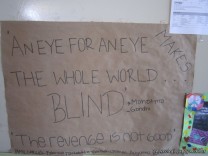 "AN EYE FOR AN EYE
MAKES
THE WHOLE WORLD...
BLIND"
"The revenge is not good"